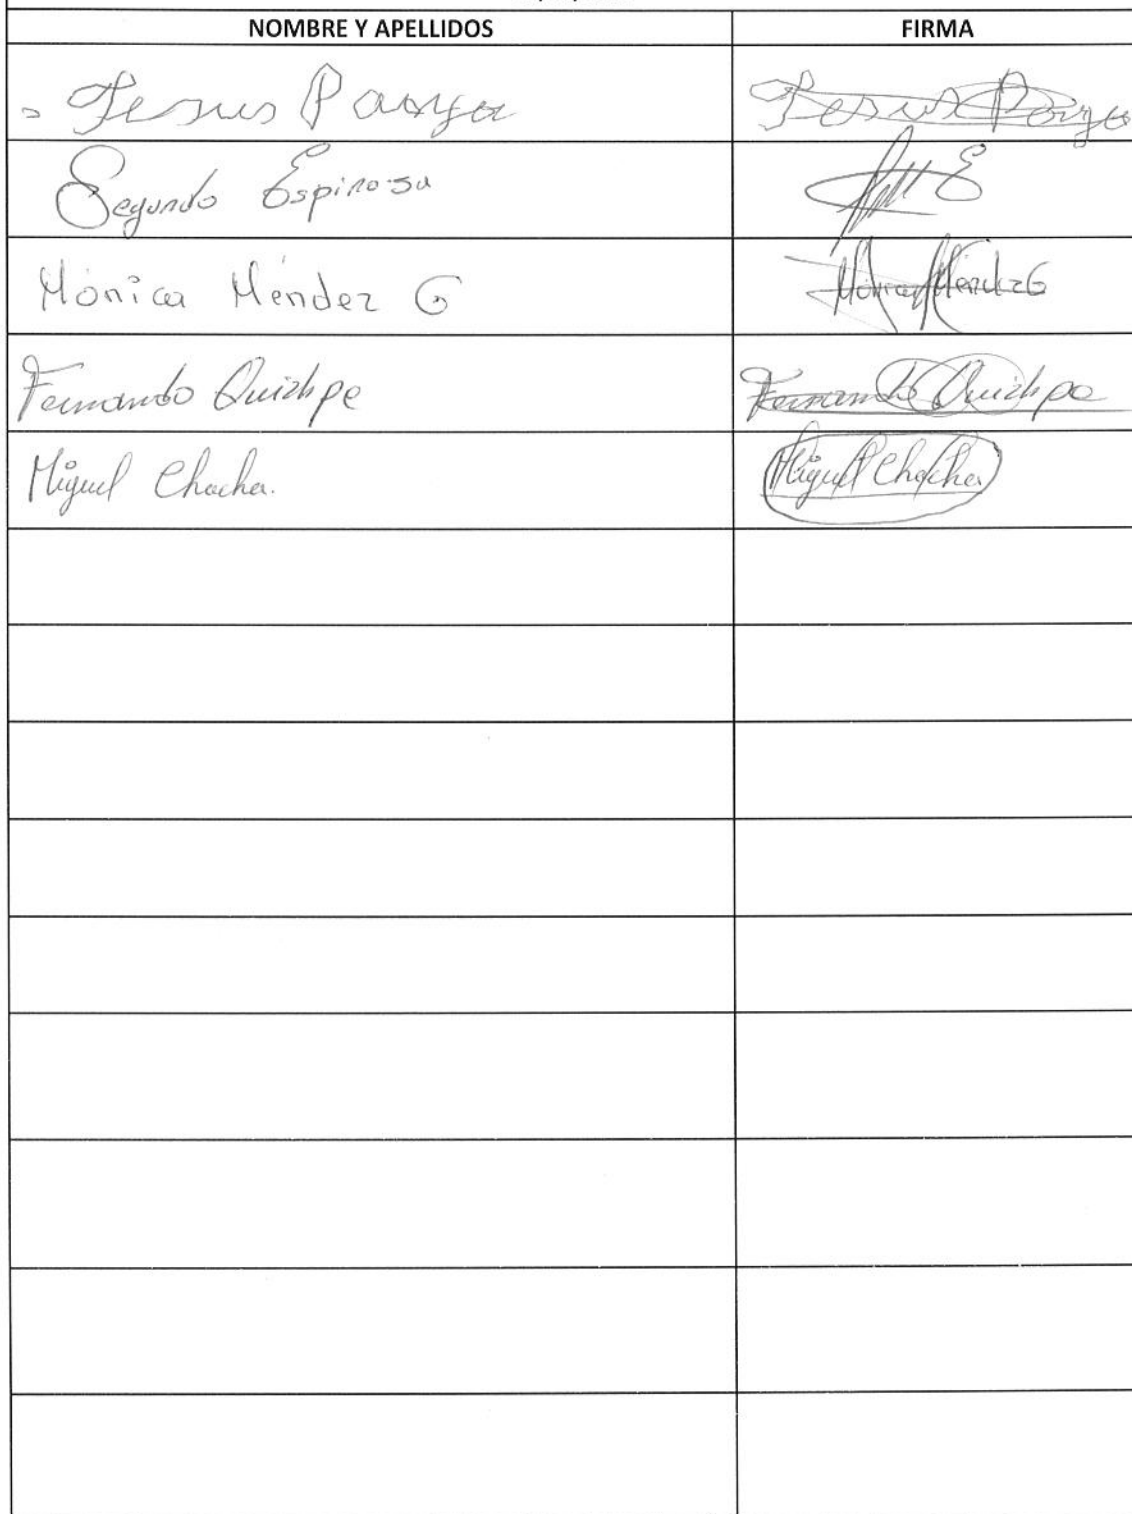 NOMBRE Y APELLIDOS FIRMA
Jesus Jesus
Segundo Espinosa
Mónica Méndez G Mónica Méndez G
Fernando Quizhpe Fernando Quizhpe
Miguel Chacha. Miguel Chacha